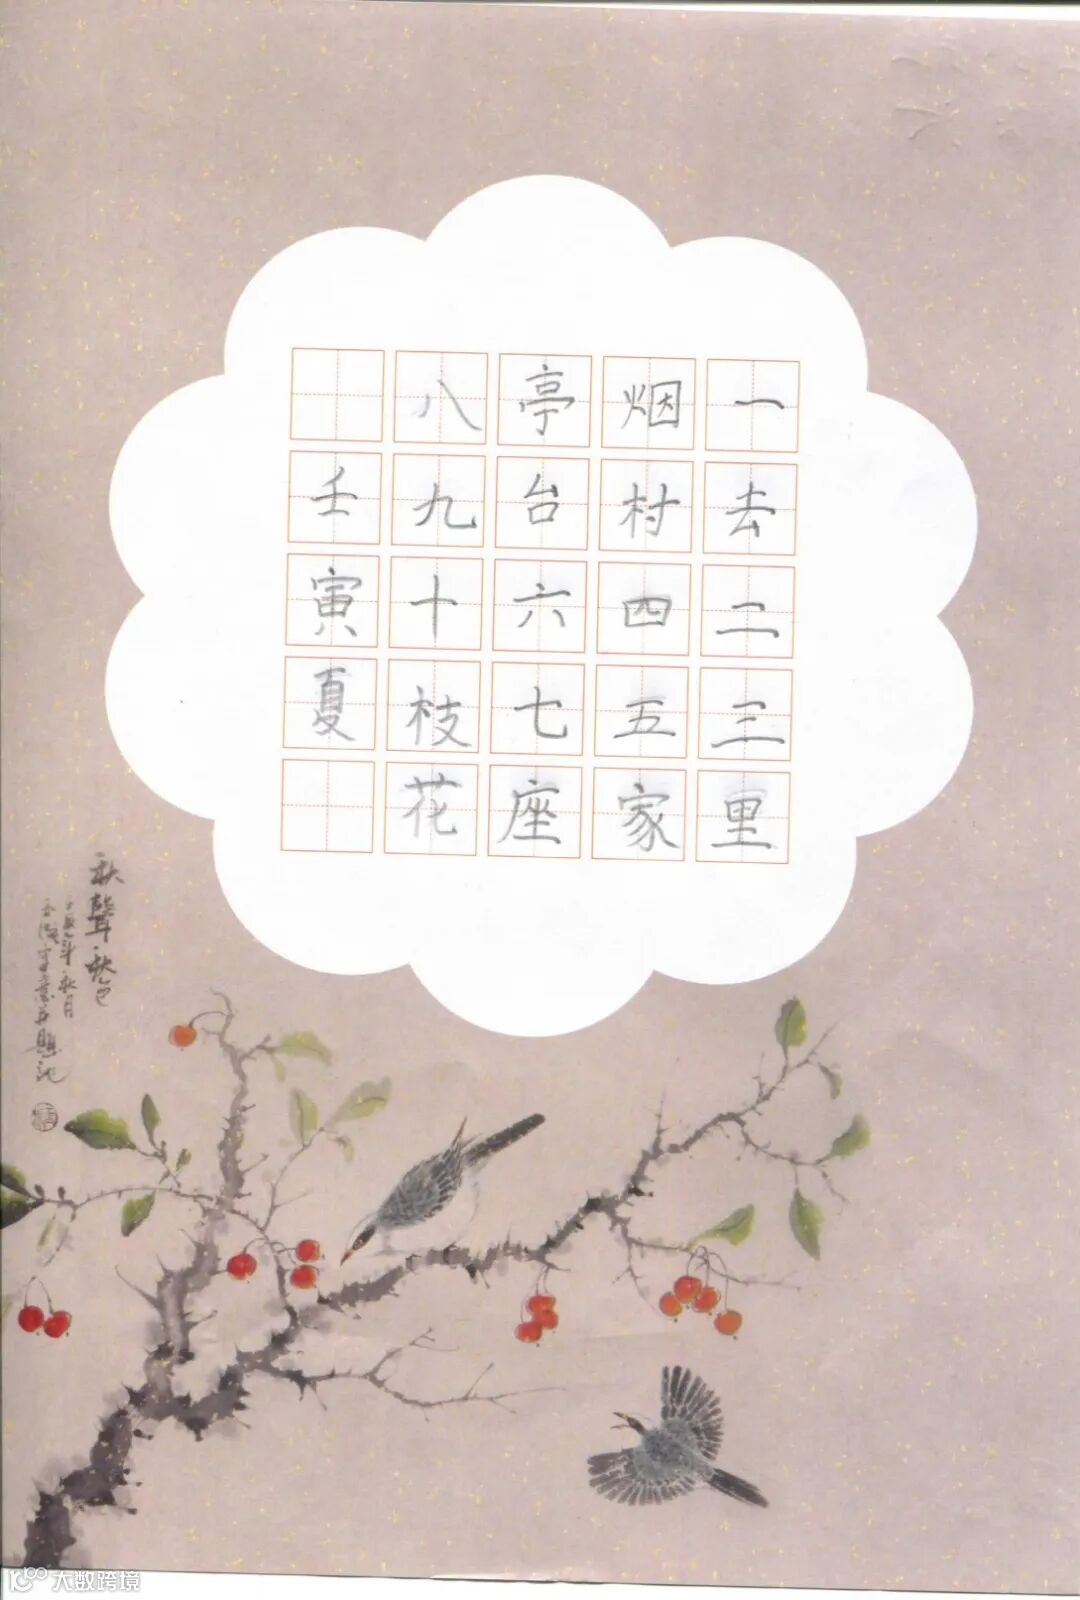 一去二三里
烟村四五家
亭台六七座
八九十枝花
壬寅夏
秋聲秋色
大数跨境